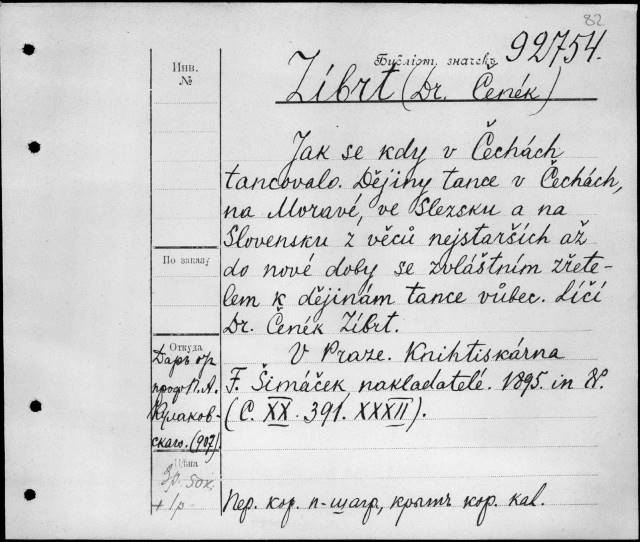 82
Библіот. значекъ 92754.
Инв.
№
Zíbrt (Dr. Čeněk)
Jak se kdy v Čechách
tancovalo. Dějiny tance v Čechách,
na Moravé, ve Slezsku a na
Slovensku z věců nejstarších až
do nové doby se zvláštním zřete-
lem k dějinám tance vůbec. Líčí
Dr. Čeněk Zíbrt.
По заказу
V Praze. Knihtiskárna
F. Šimáček nakladatelé. 1895. in 8°.
(C. XX. 391. XXXII).
Откуда
Даръ отъ
проф. П. А.
Кулаков-
скаго. (907).
Цѣна
3р. 50к.
+ 1р
Пер. кор. п-шагр, крытъ кор. кал.